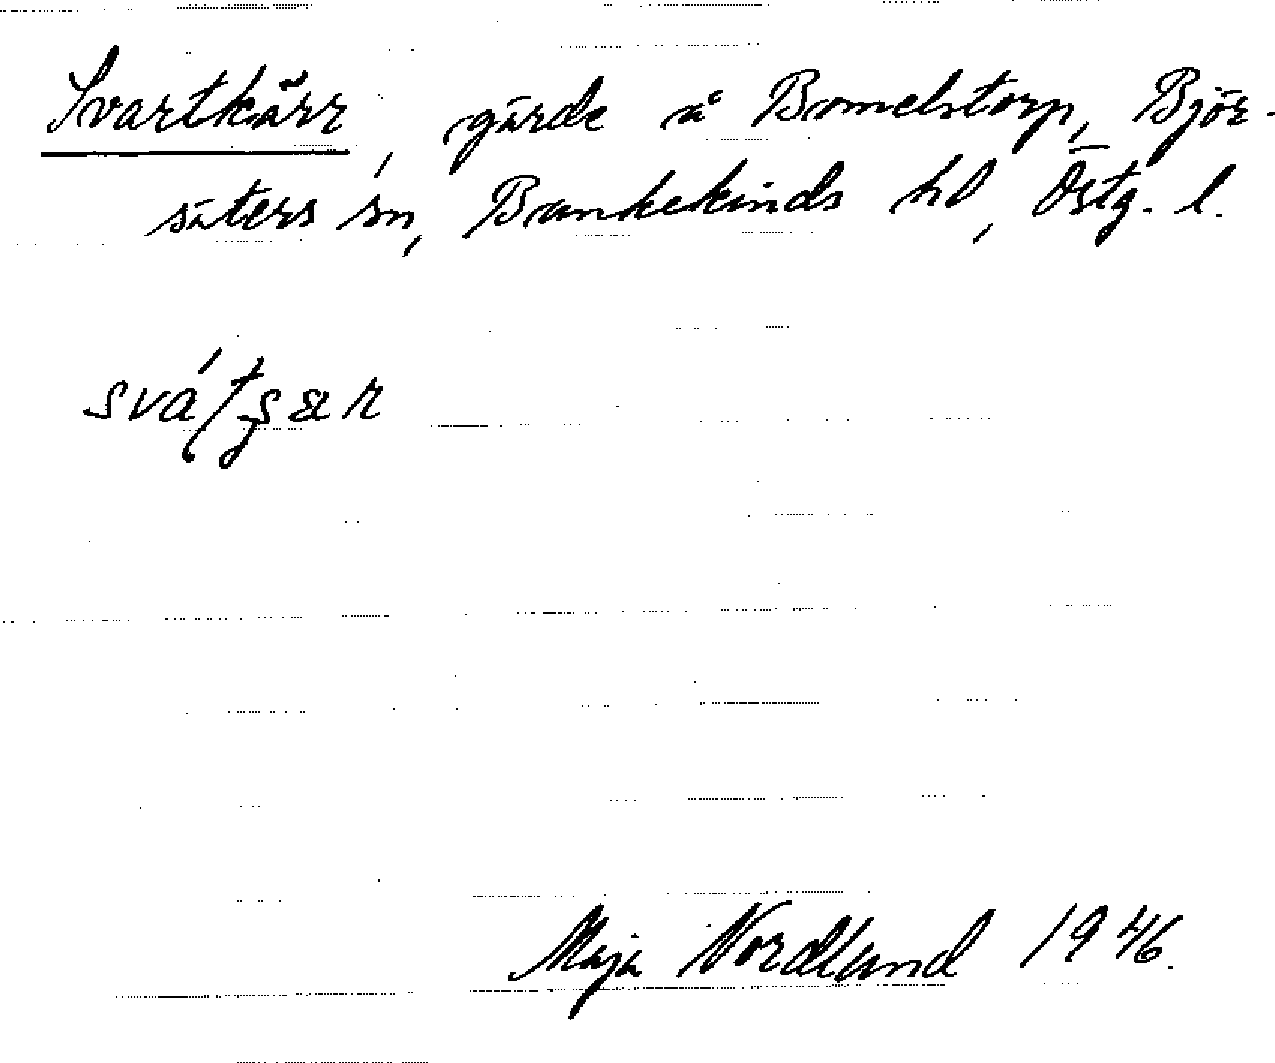 Svartkärr, gärde å Bomelstorp, Björ-
säters sn, Bankekinds hd, Östg. l.
Maja Nordlund 1946.